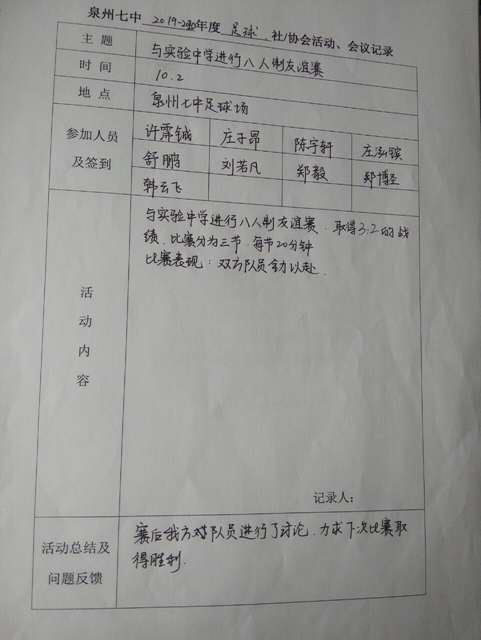 泉州七中 2019-2020年度 足球 社/协会活动、会议记录
主 题 与实验中学进行八人制友谊赛
时 间 10.2
地 点 泉州七中足球场
参加人员及签到
许霈铖 庄子昂 陈宇轩 庄泓镔
舒鹏 刘若凡 郑毅 郑博
韩云飞
活动内容
与实验中学进行八人制友谊赛.取得3:2的战
绩.比赛分为三节.每节20分钟
比赛表现:双方队员全力以赴.
记录人:
活动总结及
问题反馈
赛后我方对队员进行了讨论.力求下次比赛取
得胜利.